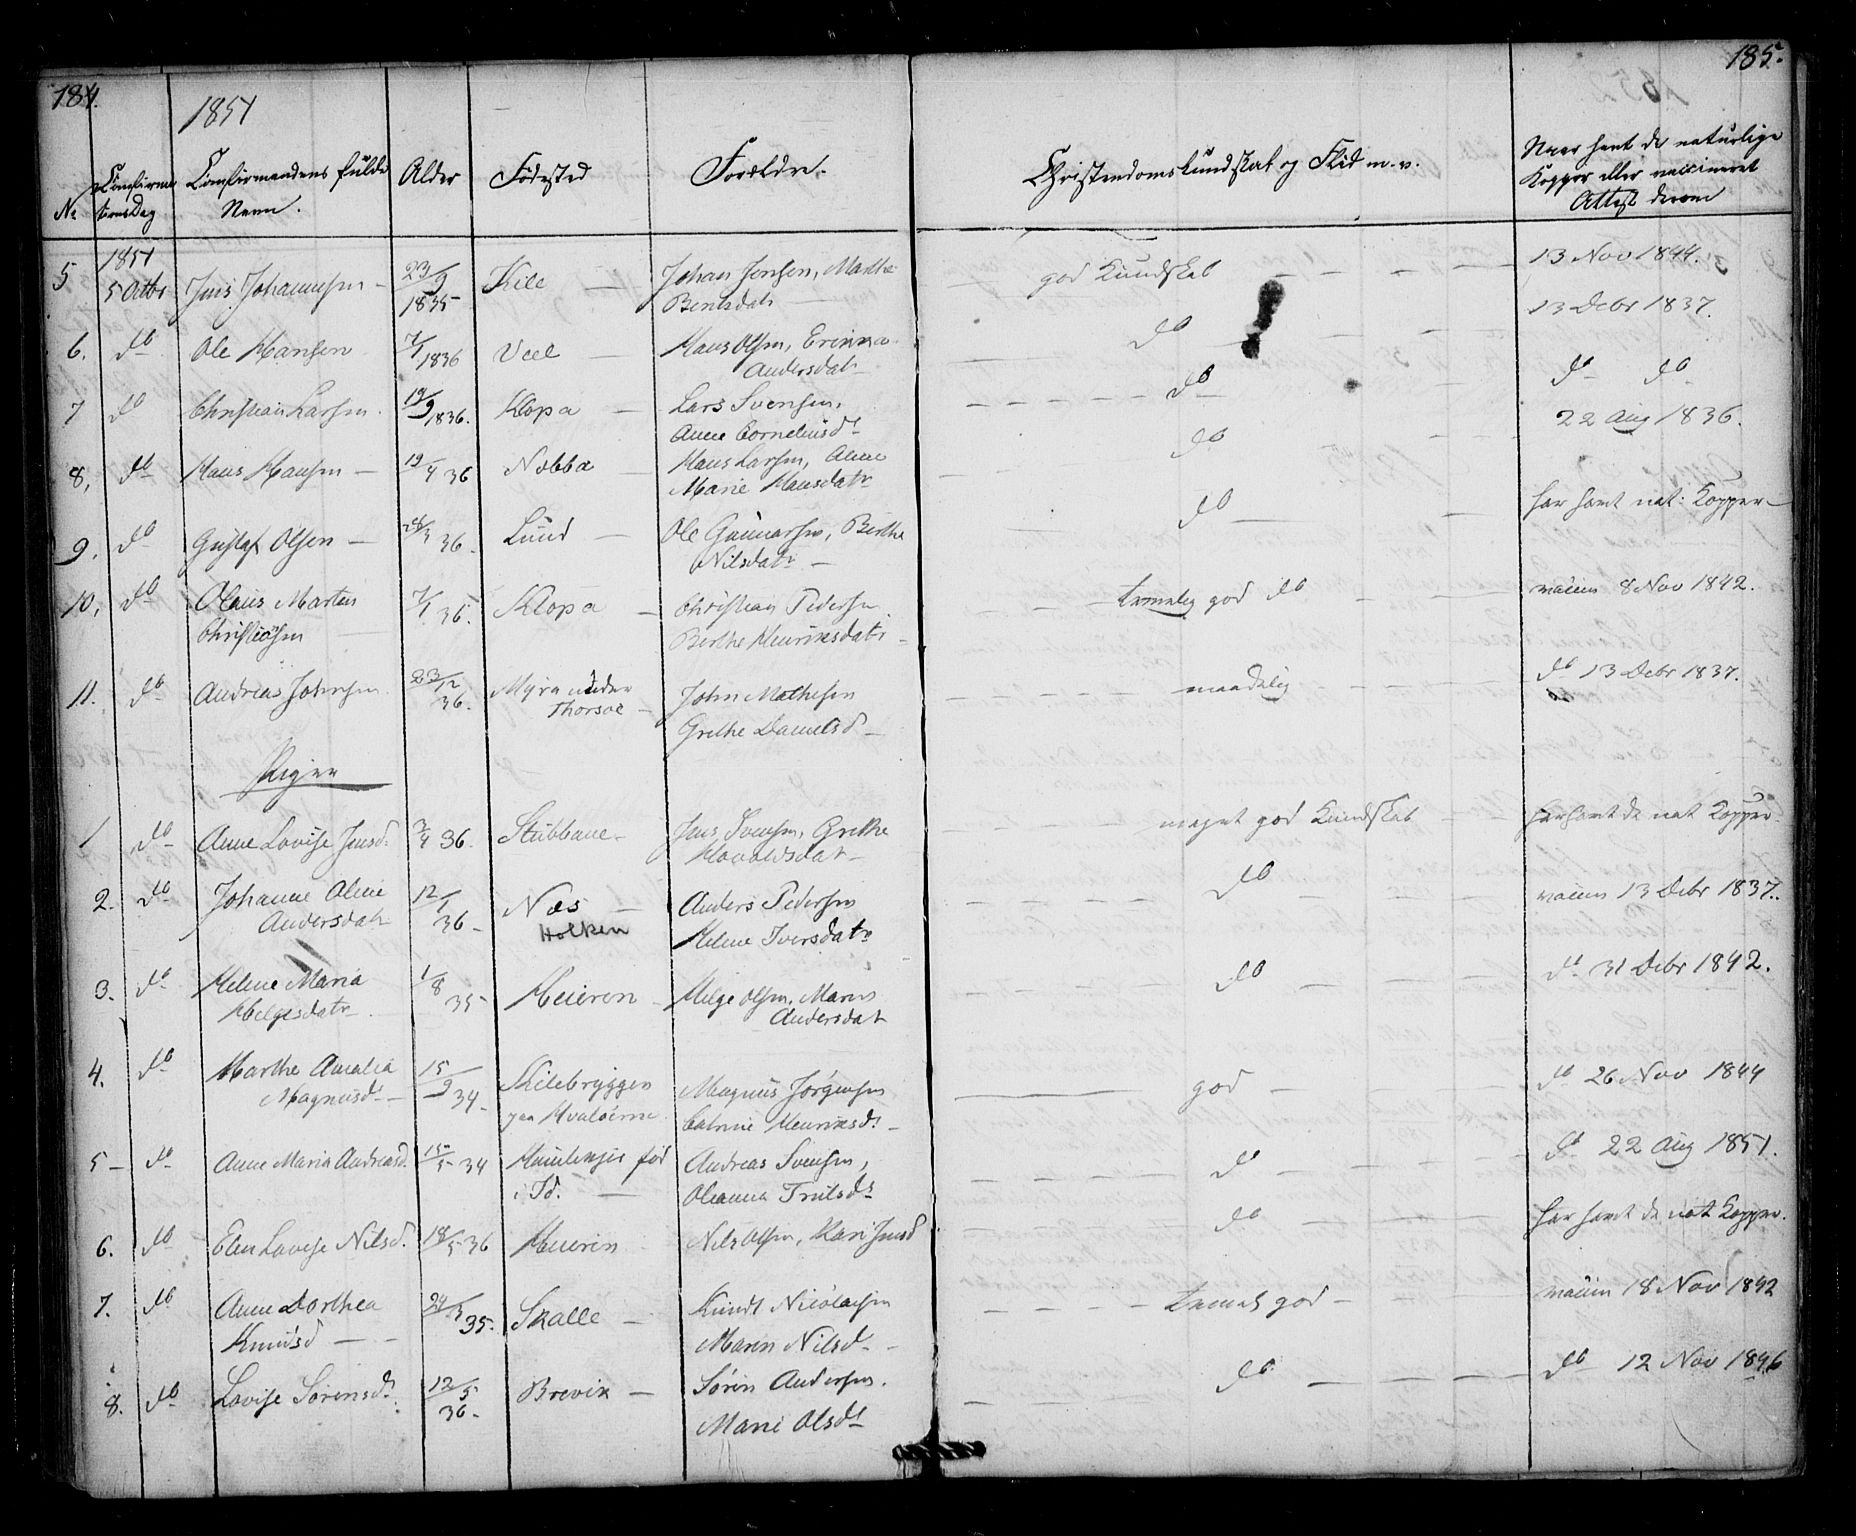 184.
185.
1851
No
Confirmationsdag
Confirmandens fulde Navn.
Alder
Fødested
Forældre.
Christendomskundskab og Flid m. v.
Naar havt de naturlige Kopper eller vaccineret Attest derom
5 1851 5 Octbr Jens Johannesen 23/9 1835 Kile Johan Jensen, Marthe Bentsdatr god Kundskab 13 Nov 1844.
6. do Ole Hansen 7/1 1836 Viel Hans Olsen, Erinna Andersdatr do 13 Debr 1837.
7 do Christian Larsen. 19/9 1836. Klopa Lars Svensen, Anne Cornelius dt do do do
8, do Hans Hansen 19/4 36 Nabba Hans Larsen, Anne Marie Hansdatr do 22 Aug 1836.
9. do Gustaf Olsen 36. Lund Ole Gunnarsen, Berthe Nilsdatr do har havt nat: Kopper
10, do Olaus Martin Christiansen 7/1 36. Klopa Christian Pedersen Berthe Henriksdatr temmelig god do vaccin 8 Nov 1842.
11. do Andreas Johnsen 23/12 36. Myra under Thorsøe John Mathesen Grethe Danielsd maadelig do 13 Debr 1837.
Piger
1 do Anne Lovise Jensd. 3/4 36. Stubbane Jens Svensen, Grethe Havoldsdat meget god Kundskab har havt de nat Kopper.
2. do Johanne Oline Andersdatr 12/1 36 Næs Holken Anders Pedersen Helene Iversdatr do vaccin 13 Debr 1837.
3. do Helene Maria Helgesdatr 1/8 35 Heieren Helge Olsen, Maren Andersdat do do 31 Debr 1842.
4. do Marthe Amalia Magnusd. 15/9 34 Kilebryggen paa Hvaløerne Magnus Jørgensen Catrine Henriksdt god do 26 Nov 1844
5 do Anne Maria Andreasd. 15/5 34 født i Id. Andreas Svensen, Oleanna Trulsdt do do 22 Aug 1851.
6. do Elen Lovise Nilsd. 18/5 36 Heieren Nils Olsen, Kari Jensd do har havt de nat Kopper.
7. do Anne Dorthea Knudsd 35. Skalle Knudt Nicolaysen Maren Nilsd temmel god vaccin 18 Nov 1842
8. do Lovise Sørensd. 12/5 36 Brevik Søren Andersen. Marie Olsdt do do 12 Nov 1846